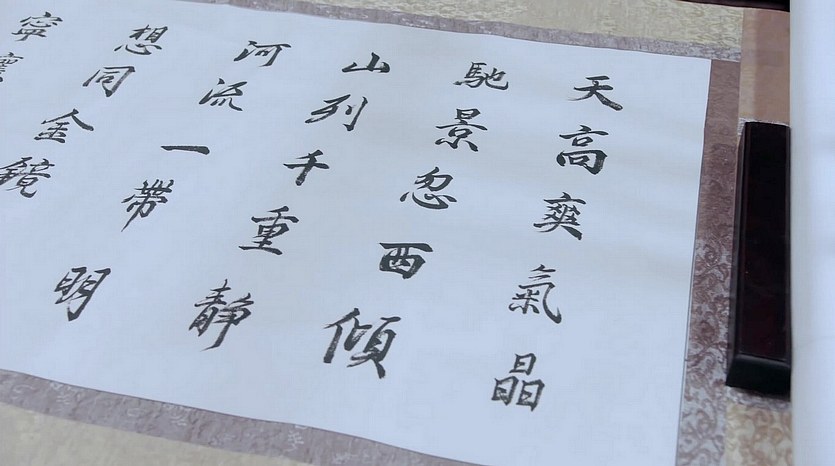 天高爽氣晶
馳景忽西傾
山列千重靜
河流一帶明
想同金鏡
寧